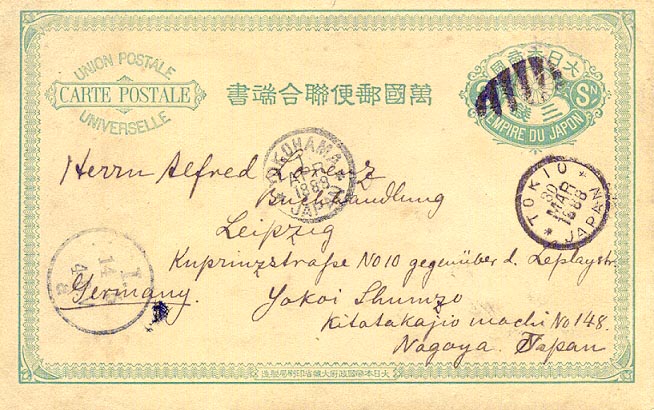 UNION POSTALE
CARTE POSTALE
UNIVERSELLE
書端合聯便郵國萬
大日本帝國
三
Sn
EMPIRE DU JAPON
Herrn Alfred Lorenz
YOKOHAMA
1
APR
1888
JAPAN
Buchhandlung
TOKIO
30
MAR
1888
JAPAN
Leipzig
Kuprinzstraße No 10 gegenüber d. Leplaystr.
Germany.
Yokoi Shumzo
Kitatakajio machi No 148.
Nagoya. Japan
造製局刷印省藏大府政國帝本日大